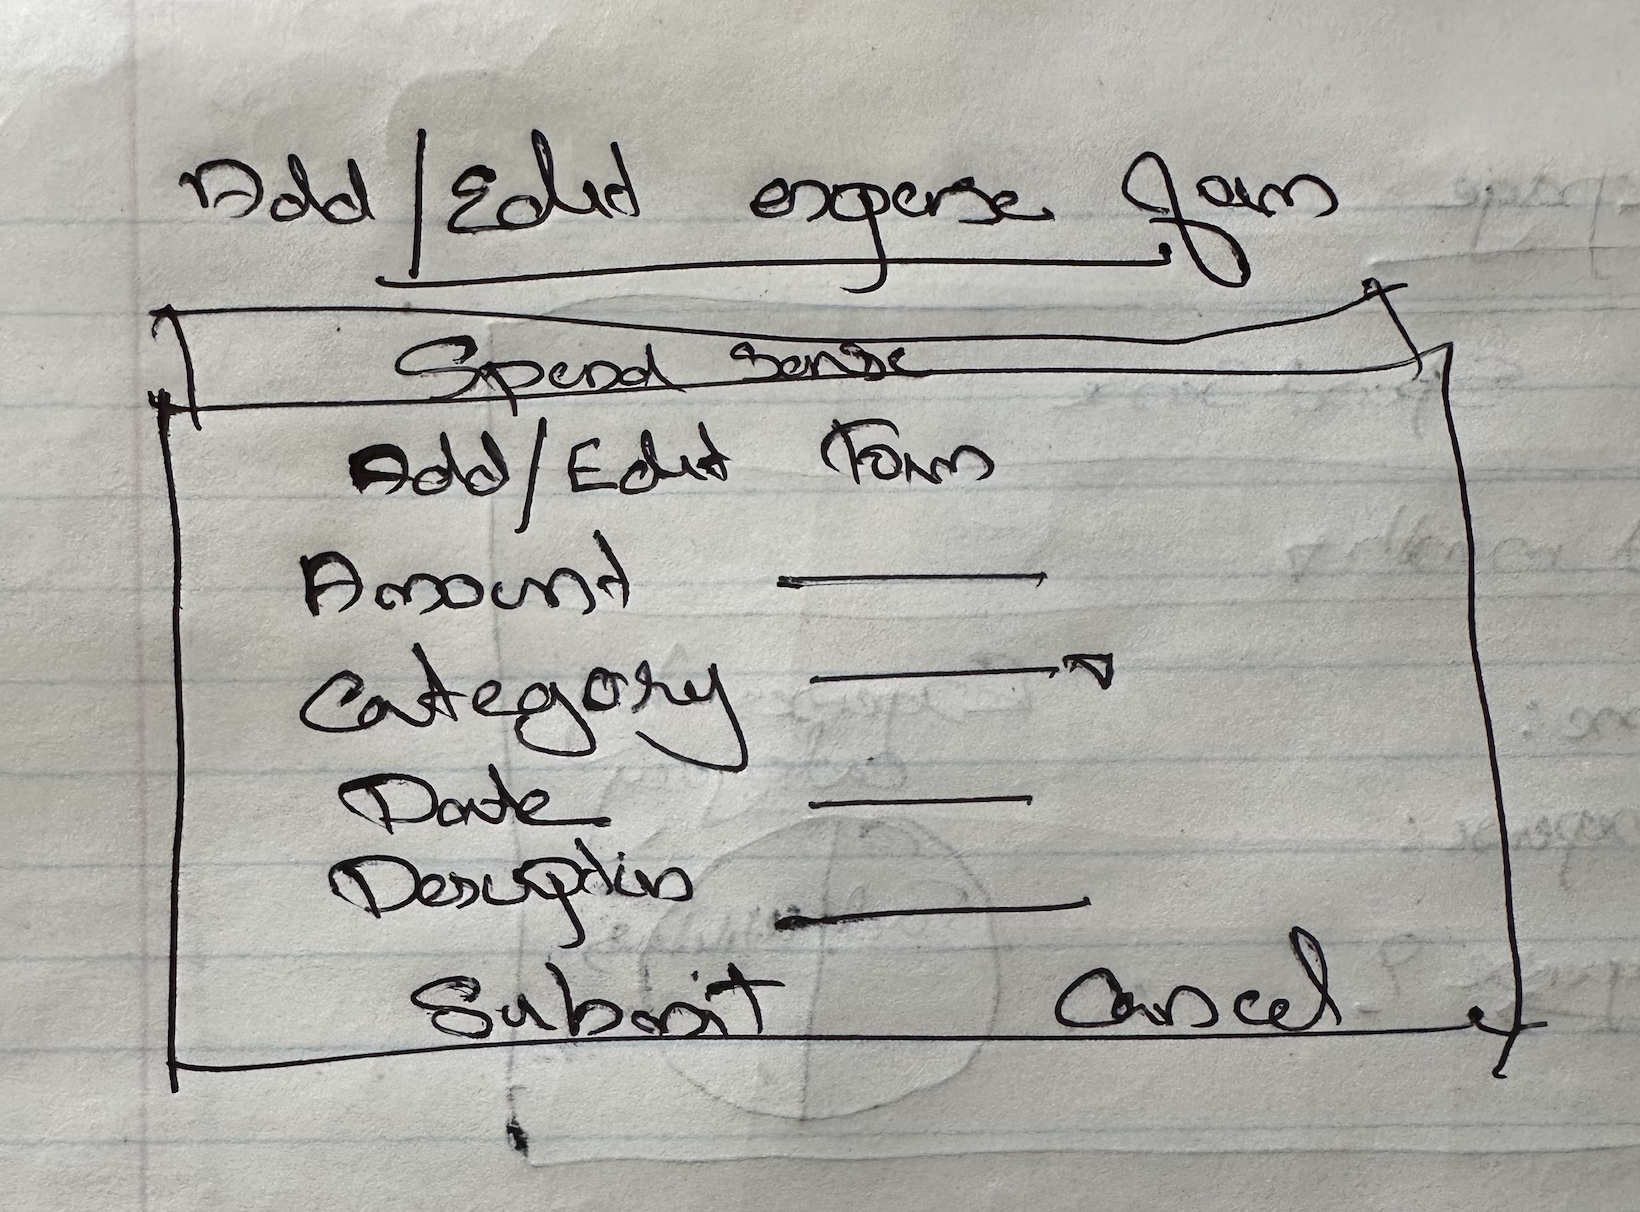 Add/Edit expense form
Spend sense
Add/Edit Form
Amount
Category
Date
Description
Submit Cancel